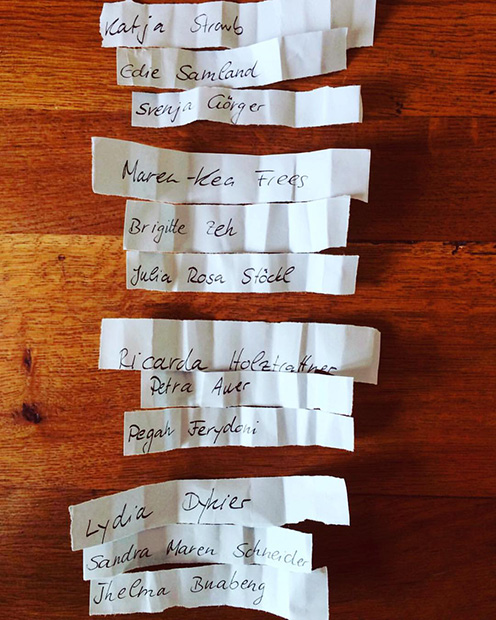 Katja Straub
Edie Samland
Svenja Görger
Maren-Kea Frees
Brigitte Zeh
Julia Rosa Stöckl
Ricarda Holztrattner
Petra Auer
Pegah Ferydoni
Lydia Dykier
Sandra Maren Schneider
Thelma Buabeng